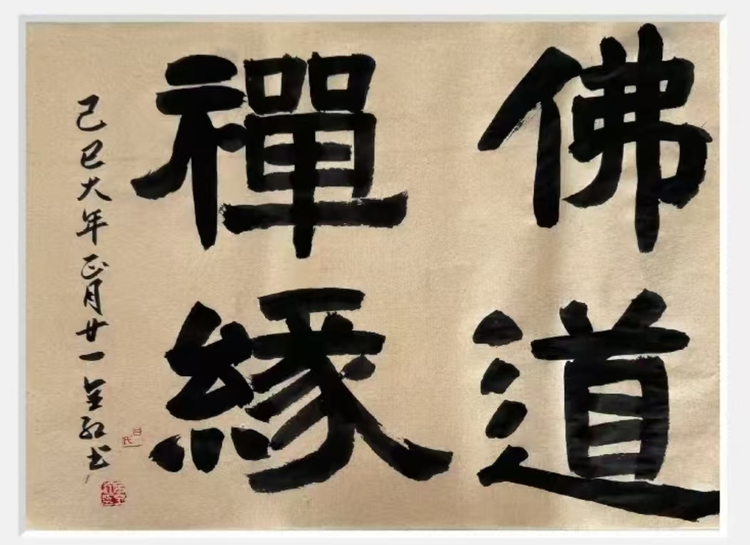 佛道
禪緣
己巳大年正月廿一全紅书